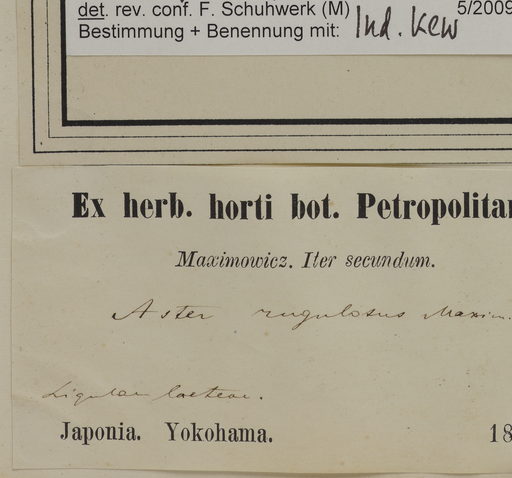 det. rev. conf. F. Schuhwerk (M) 5/2009
Bestimmung + Benennung mit: Ind. Kew
Ex herb. horti bot. Petropolitan
Maximowicz. Iter secundum.
Aster rugulosus Maxim.
Ligulae lacteae.
Japonia. Yokohama. 18